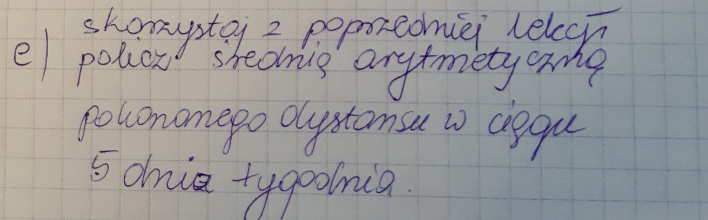 skorzystaj z poprzedniej lekcji
e) policz średnią arytmetyczną
pokonanego dystansu w ciągu
5 dnia tygodnia.